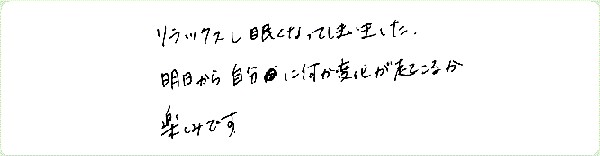 リラックスし眠くなってしまいました.
明日から自分に何か変化が起こるか
楽しみです